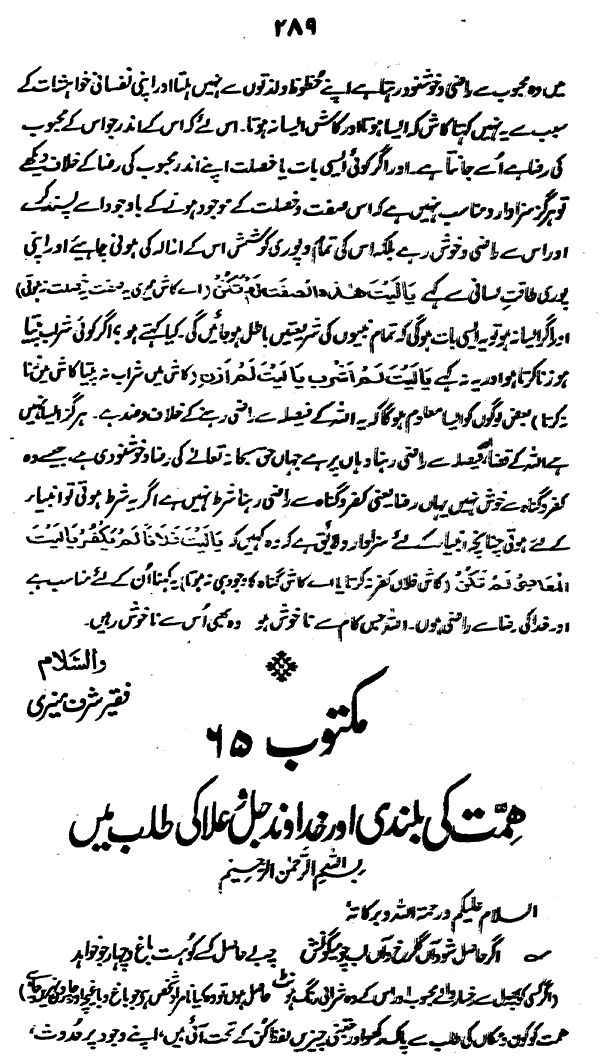 ۲۸۹
میں وہ محبوب سے راضی و خوشنود رہتا ہے اپنے محظوظ و لذتوں سے نہیں ہلتا اور اپنی نفسانی خواہشات کے
سبب سے یہ نہیں کہتا کاش کہ ایسا ہوتا اور کاش ایسا نہ ہوتا۔ اس لئے کہ اس کے اندر جو اس کے محبوب
کی رضا ہے اُسے جانتا ہے۔ اور اگر کوئی ایسی بات یا خصلت اپنے اندر محبوب کی رضا کے خلاف دیکھے
تو ہرگز سزاوار و مناسب نہیں ہے کہ اس صفت و خصلت کے موجود ہونے کے باوجود اسے پسند کرے
اور اس سے راضی و خوش رہے بلکہ اس کی تمام و پوری کوشش اس کے ازالہ کی ہونی چاہئے اور اپنی
پوری طاقتِ لسانی سے کہے یَا لَیْتَ ھٰذِہِ الصفت لَمْ تَکُنْ (اے کاش میری یہ صفت یہ خصلت نہ ہوتی)
اور اگر ایسا نہ ہو تو یہ ایسی بات ہوگی کہ تمام نبیوں کی شریعتیں باطل ہو جائیں گی۔ کیا کہتے ہو؟ اگر کوئی شراب پیتا
ہو زنا کرتا ہو اور یہ نہ کہے یَا لَیْتَ لَمْ اَشْرَب یَا لَیْتَ لَمْ اَزْنِ (کاش میں شراب نہ پیتا کاش میں زنا
نہ کرتا) بعض لوگوں کو ایسا معلوم ہوگا کہ یہ اللہ کے فیصلہ سے راضی رہنے کے خلاف و ضد ہے۔ ہرگز ایسا نہیں
ہے اللہ کے قضا و فیصلہ سے راضی رہنا وہاں پر ہے جہاں حق سبحانہ تعالےٰ کی رضا و خوشنودی ہے۔ جیسے وہ
کفر و گناہ سے خوش نہیں یہاں رضا یعنی کفر و گناہ سے راضی رہنا شرط نہیں ہے اگر یہ شرط ہوتی تو انبیار
کے لئے ہوتی چنانچہ انبیاء کے لئے سزاوار و لائق ہے کہ وہ کہیں کہ یَا لَیْتَ فَلَانًا لَمْ یَکْفُرْ یَا لَیْتَ
الْمَعَاصِیَ لَمْ تَکُنْ (کاش فلاں کفر نہ کرتا یا اے کاش گناہ کا وجود ہی نہ ہوتا) یہ کہنا اُن کے لئے مناسب ہے
اور خدا کی رضا سے راضی ہوں۔ اللہ جس کام سے ناخوش ہو وہ بھی اُس سے ناخوش رہیں۔
والسّلام
فقیر شرف منیری
مکتوب ۶۵
ھمّت کی بلندی اور خداوند جلّ و علا کی طلب میں
بسم اللہ الرّحمٰن الرّحیم
السلام علیکم و رحمۃ اللہ و برکاتہٗ
اگر حاصل شود آں گلرخ و آں لب چو میگونش چہ بے حاصل کسے کو ہست باغ و بہار جو خواہد
(اگر کسی کو پھول سے رخسار والے محبوب اور اس کے وہ شرابی رنگ ہونٹ حاصل ہوں تو وہ کیا نامراد شخص ہو جو باغ و باغیچہ اور
ہمت کو کون و مکاں کی طلب سے پاک رکھو اور جتنی چیزیں لفظ کن کے تحت آئی ہیں، اپنے وجود پر حدوث،